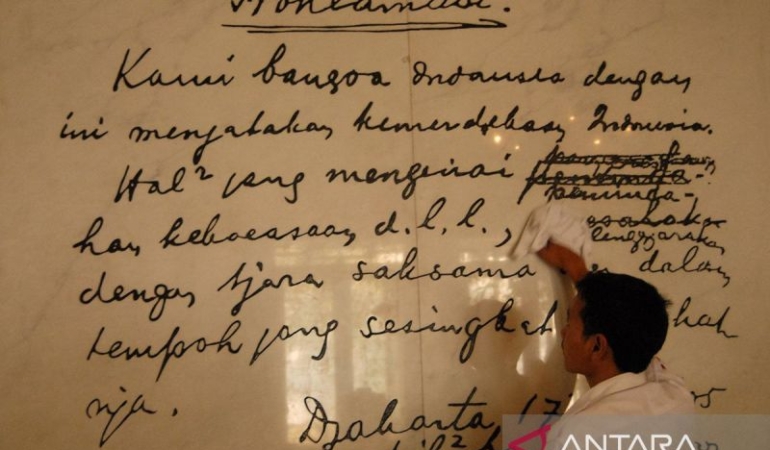 Proklamasi.
Kami bangsa Indonesia dengan
ini menjatakan kemerdekaan Indonesia.
Hal² jang mengenai peminda-
han kekoeasaan d.l.l., lenggarakan
dengan tjara saksama dalam
tempoh jang sesingkat
nja.
Djakarta, 17 05
ANTARA